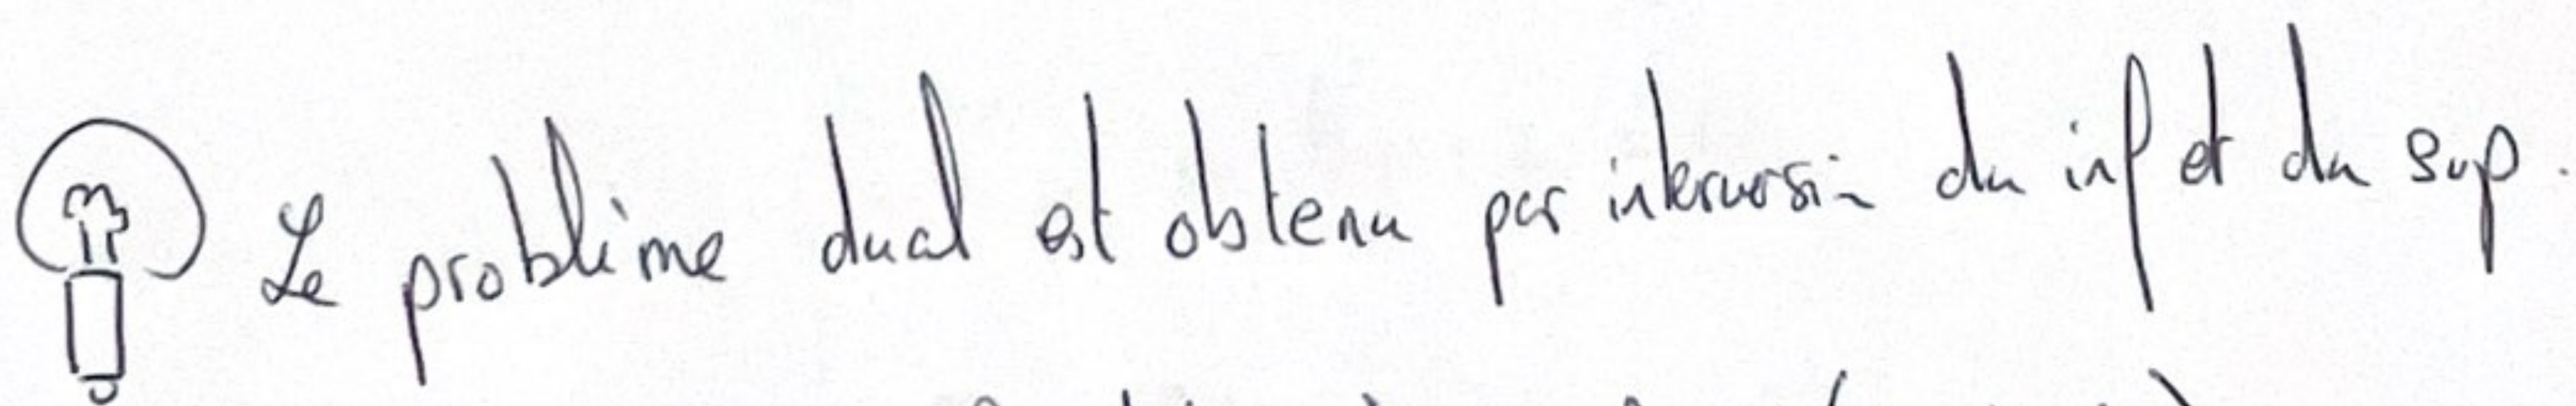 Le problème dual est obtenu par interversion du inf et du sup.